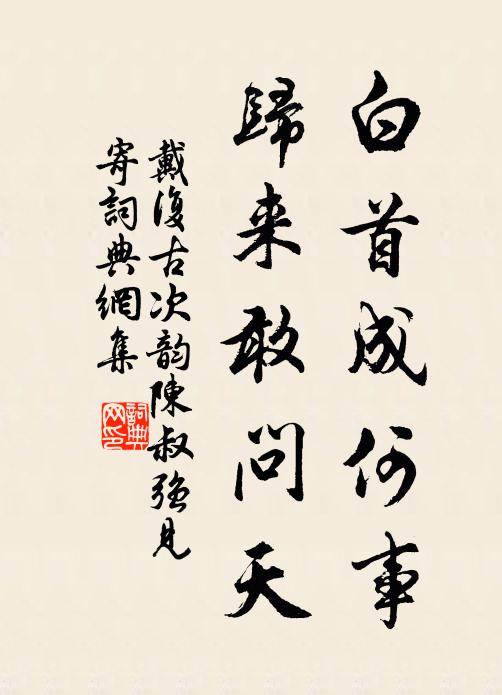 白首成何事
歸来敢問天
戴復古次韵陳叔強見
寄詞典網集
詞典
网印